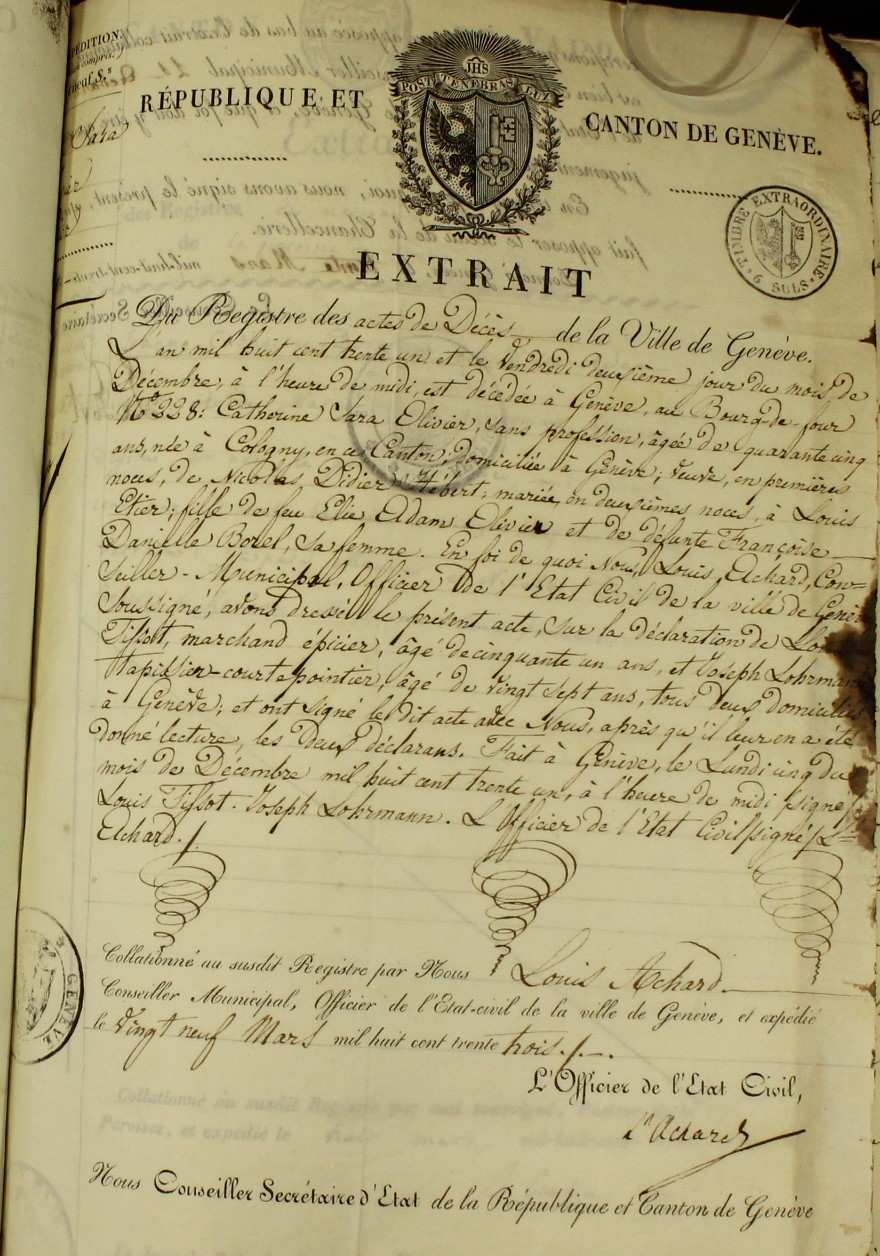 PÉDITION,
compris.
neuf S.ˢ
Sara
JHS
POST TENEBRAS LUX
RÉPUBLIQUE ET
CANTON DE GENÈVE.
TIMBRE EXTRAORDINAIRE
9 SOLS
EXTRAIT
Du Registre des actes de Décès de la Ville de Genève.
L'an mil huit cent trente un et le Vendredi deuxième jour du mois de
Décembre, à l'heure de midi, est décédée à Genève, au Bourg-de-four
Nº 228: Catherine Sara Olivier, sans profession, âgée de quarante cinq
ans, née à Cologny, en ce Canton, domiciliée à Genève; veuve, en premières
noces, de Nicolas Didier Hébert; mariée, en deuxièmes noces, à Louis
Etier; fille de feu Elie Adam Olivier et de défunte Françoise
Danielle Borel, sa femme. En foi de quoi Nous, Louis Achard, Con=
seiller-Municipal, Officier de l'Etat Civil de la ville de Genève
Soussigné, avons dressé le présent acte, sur la déclaration de Louis
Tissot, marchand épicier, âgé de cinquante un ans, et Joseph Lohrmann
tapissier-courtepointier, âgé de vingt sept ans, tous deux domiciliés
à Genève; et ont signé le dit acte avec Nous, après qu'il leur en a été
donné lecture, les deux déclarans. Fait à Genève, le Lundi cinq du
mois de Décembre mil huit cent trente un, à l'heure de midi signé
Louis Tissot. Joseph Lohrmann. L'Officier de l'Etat Civil signé Ls
Achard.
Collationné au susdit Registre par Nous Louis Achard
Conseiller Municipal, Officier de l'Etat-civil de la ville de Genève, et expédié
le vingt neuf Mars mil huit cent trente trois.
GENÈVE
L'Officier de l'Etat Civil,
Ls Achard
Nous Conseiller Secrétaire d'Etat de la République et Canton de Genève